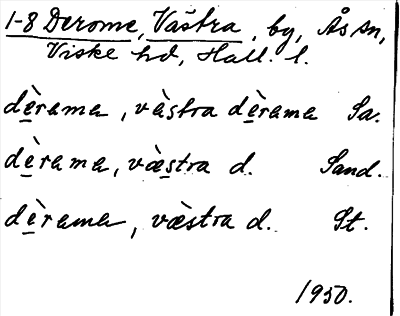 1-8 Derome, Västra, by, Ås sn,
Viske hd, Hall. l.
dèrama, vàstra dèrama Sa.
dèrama, væ̀stra d. Sand.
dèrama, væ̀stra d. St.
1950.